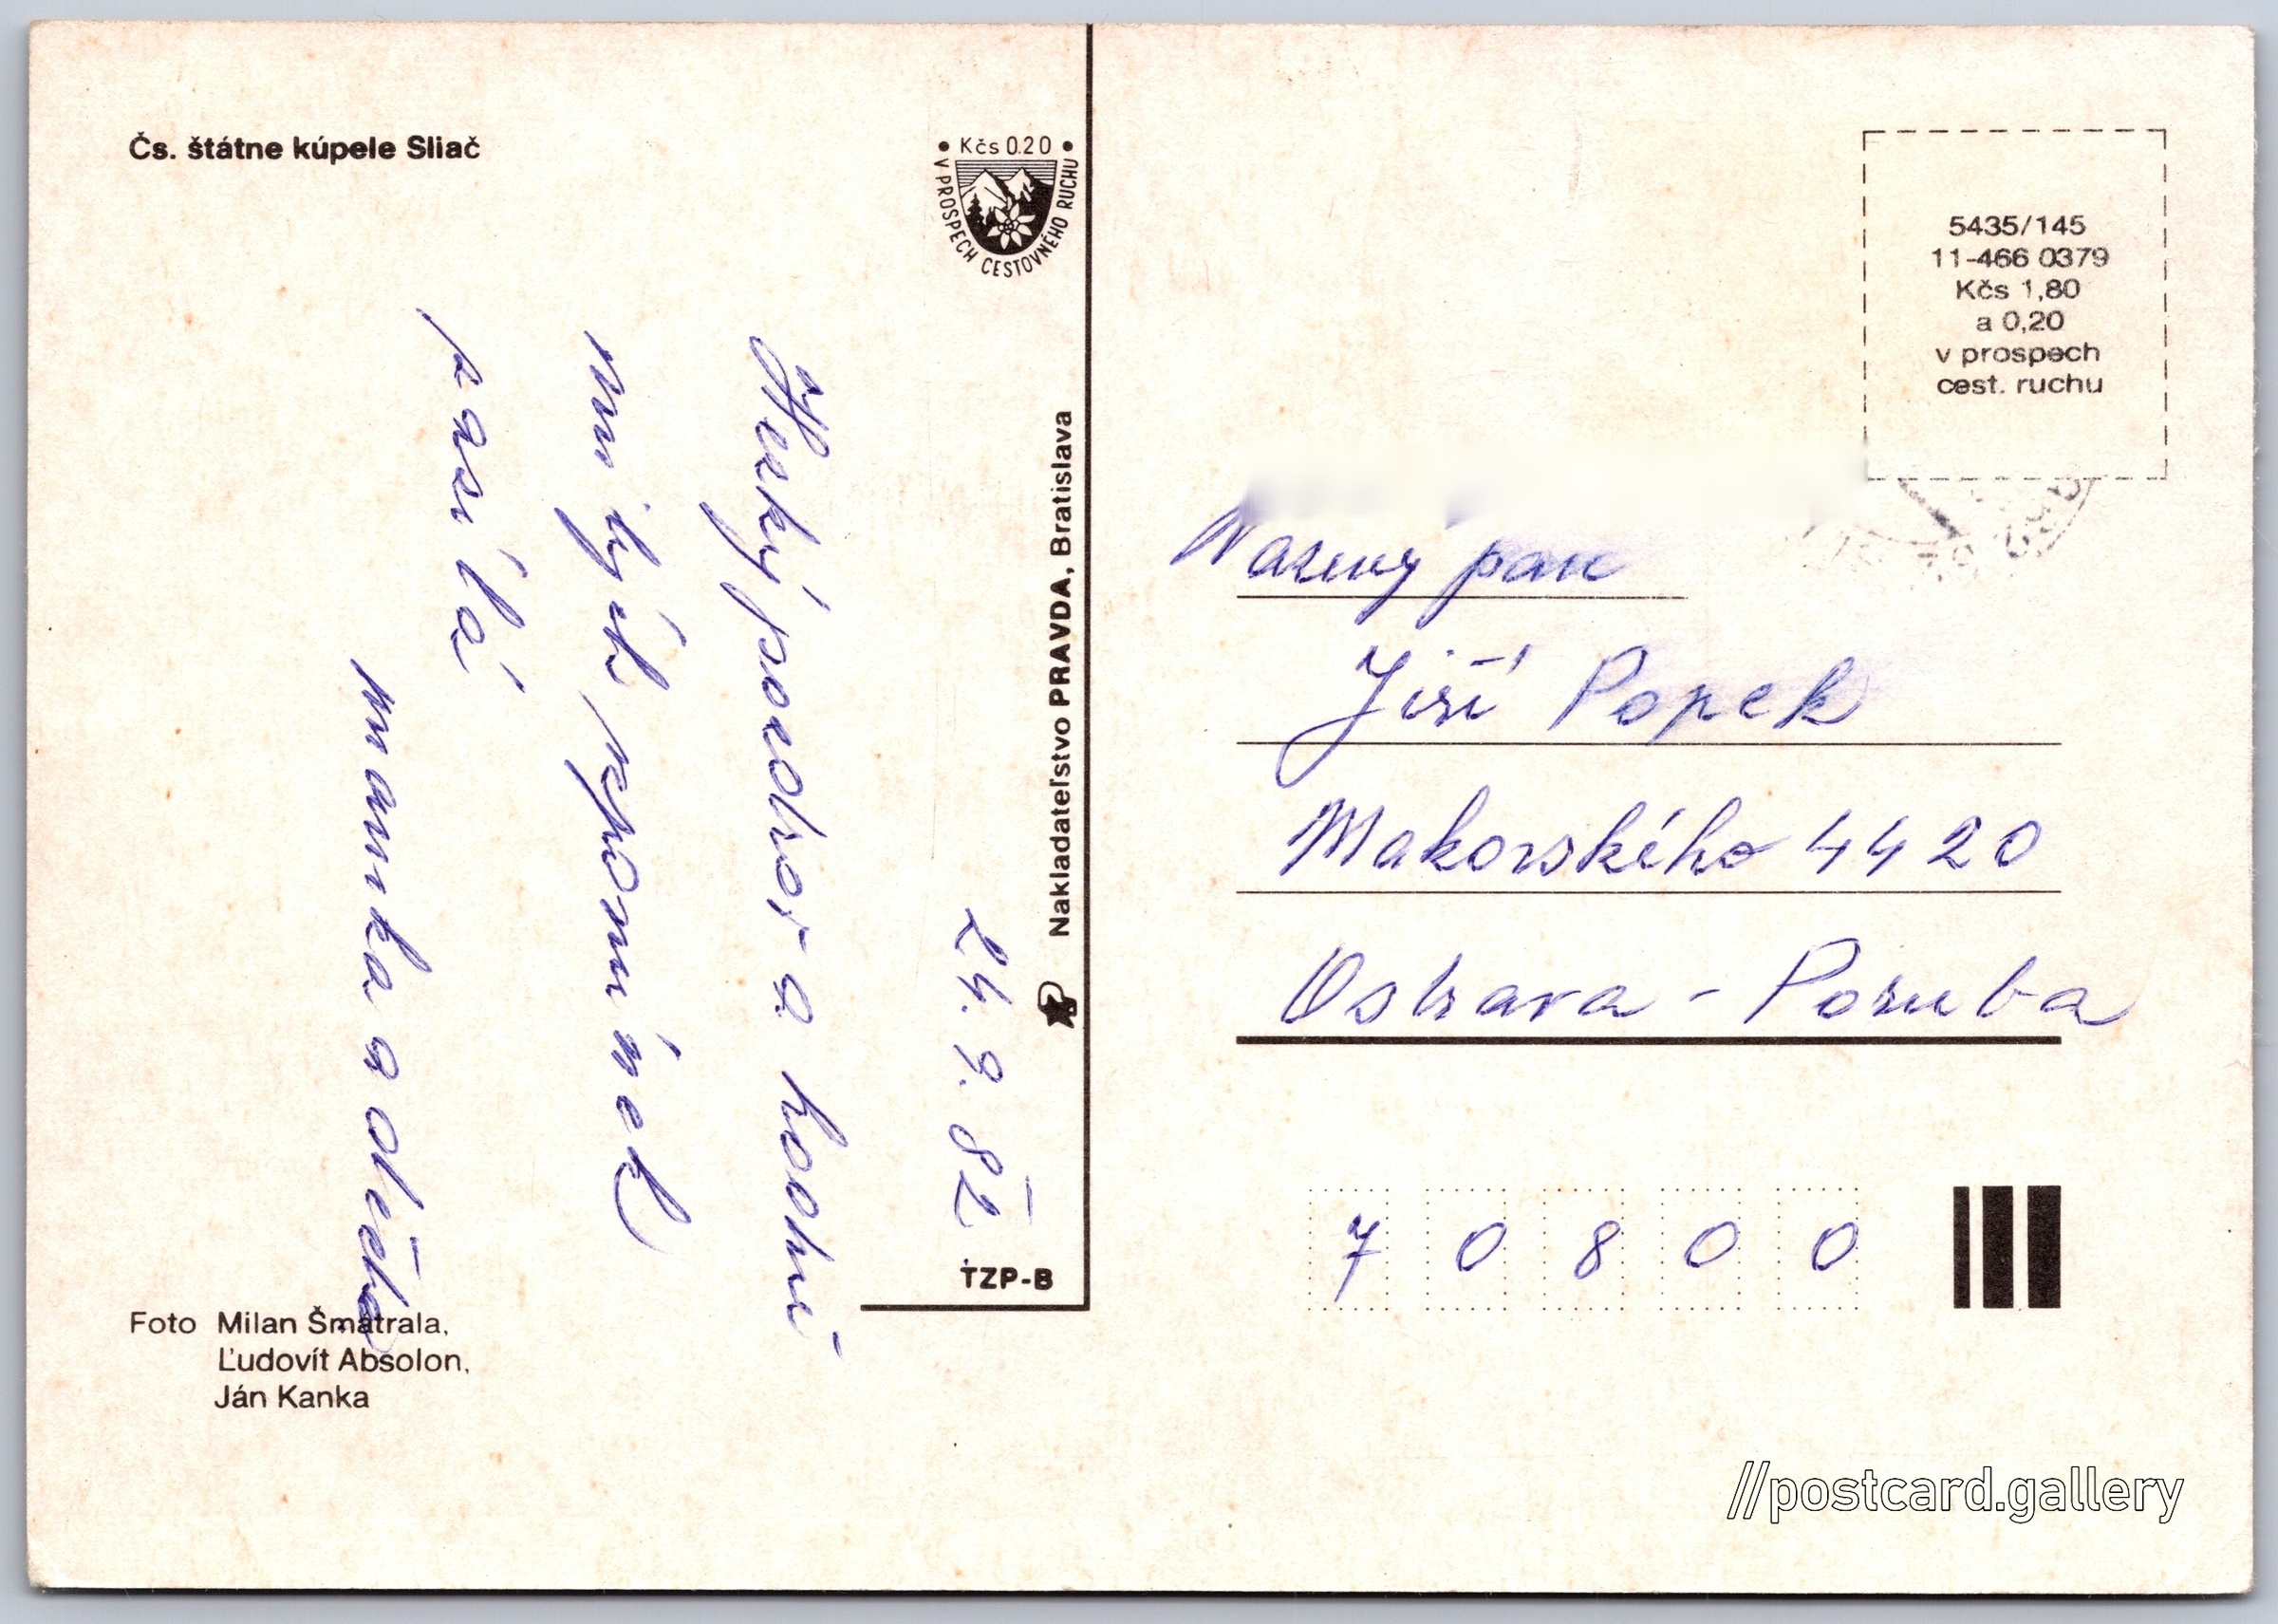 Čs. štátne kúpele Sliač
• Kčs 0.20 •
V PROSPECH CESTOVNÉHO RUCHU
Nakladateľstvo PRAVDA, Bratislava
24. 9. 82
Hezký pozdrav a hodně
milých vzpomínek
posílá
mamka a
TZP-B
Foto Milan Šmatrala,
Ľudovít Absolon,
Ján Kanka
5435/145
11-466 0379
Kčs 1,80
a 0,20
v prospech
cest. ruchu
Vážený pan
Jiří Popek
Makovského 4420
Ostrava - Poruba
7 0 8 0 0
//postcard.gallery